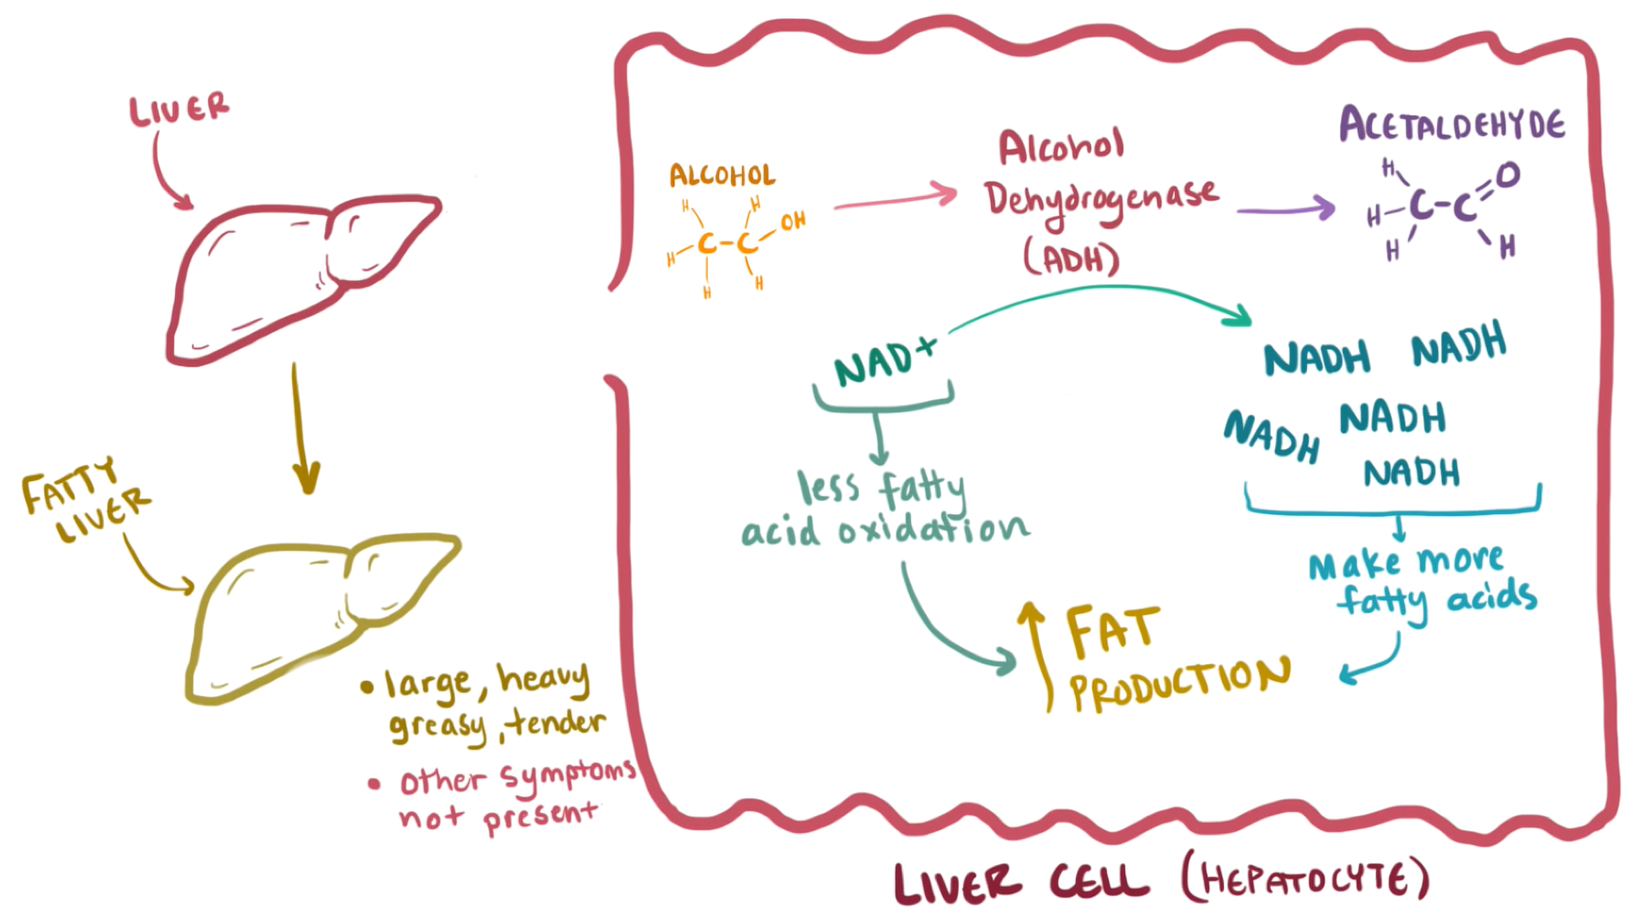 LIVER
FATTY
LIVER
• large, heavy
greasy, tender
• other symptoms
not present
ALCOHOL
H H
H C-C OH
H H
Alcohol
Dehydrogenase
(ADH)
ACETALDEHYDE
H O
H-C-C
H H
NAD+
less fatty
acid oxidation
NADH NADH
NADH NADH
NADH
Make more
fatty acids
FAT
PRODUCTION
LIVER CELL (HEPATOCYTE)